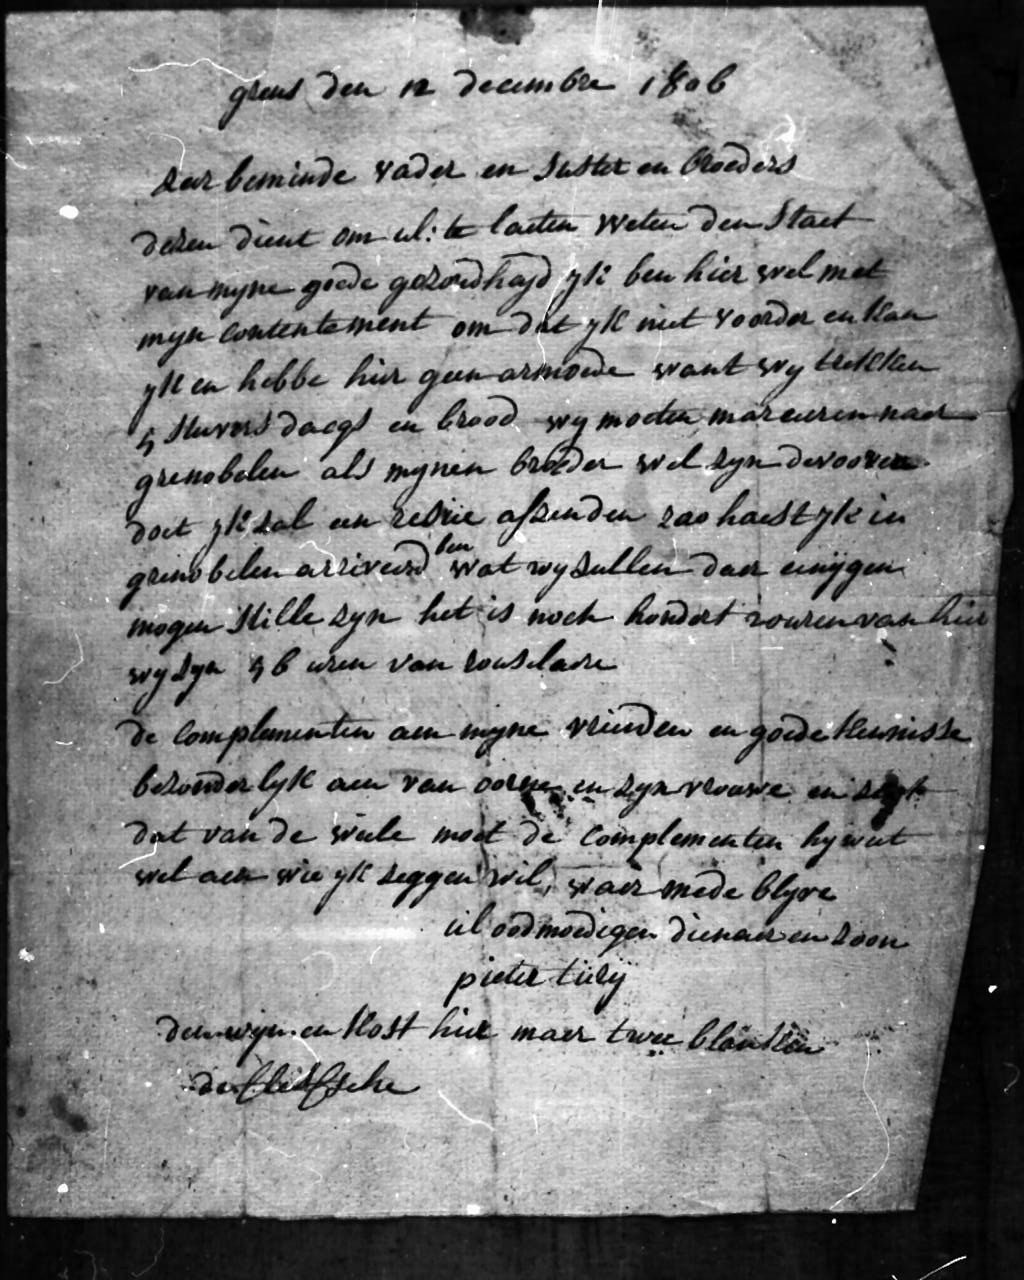 grens den 12 decembre 1806
Zeer beminde vader en suster en broeders
dezen dient om ul: te laeten weten den staet
van myne goede gezondhajd yk ben hier wel met
myn contentement om dat yk niet voorder en kan
yk en hebbe hier geen armoede want wy trekken
5 stuvers daegs en brood wy moeten marceren naer
grenobelen als mynen broeder wel zyn devooren
doet yk zal een resuie afzenden zao haest yk in
grenobelen arriveerd ben wat wy zullen daer eniygen
mogen stille zyn het is noch hondert 2 ouren van hier
wy zyn 56 uren van rouselaere
de complementen aen myne vrienden en goede kennisse
bezonderlyk aen van oorne en zyn vrouwe en zegt
dat van de weele moet de complementen hy weet
wel aen wie yk zeggen wil, waer mede blyve
ul oodmoedigen dienaer en zoon
pieter tiery
den wyn en kost hier maer twee blanken
de flessche